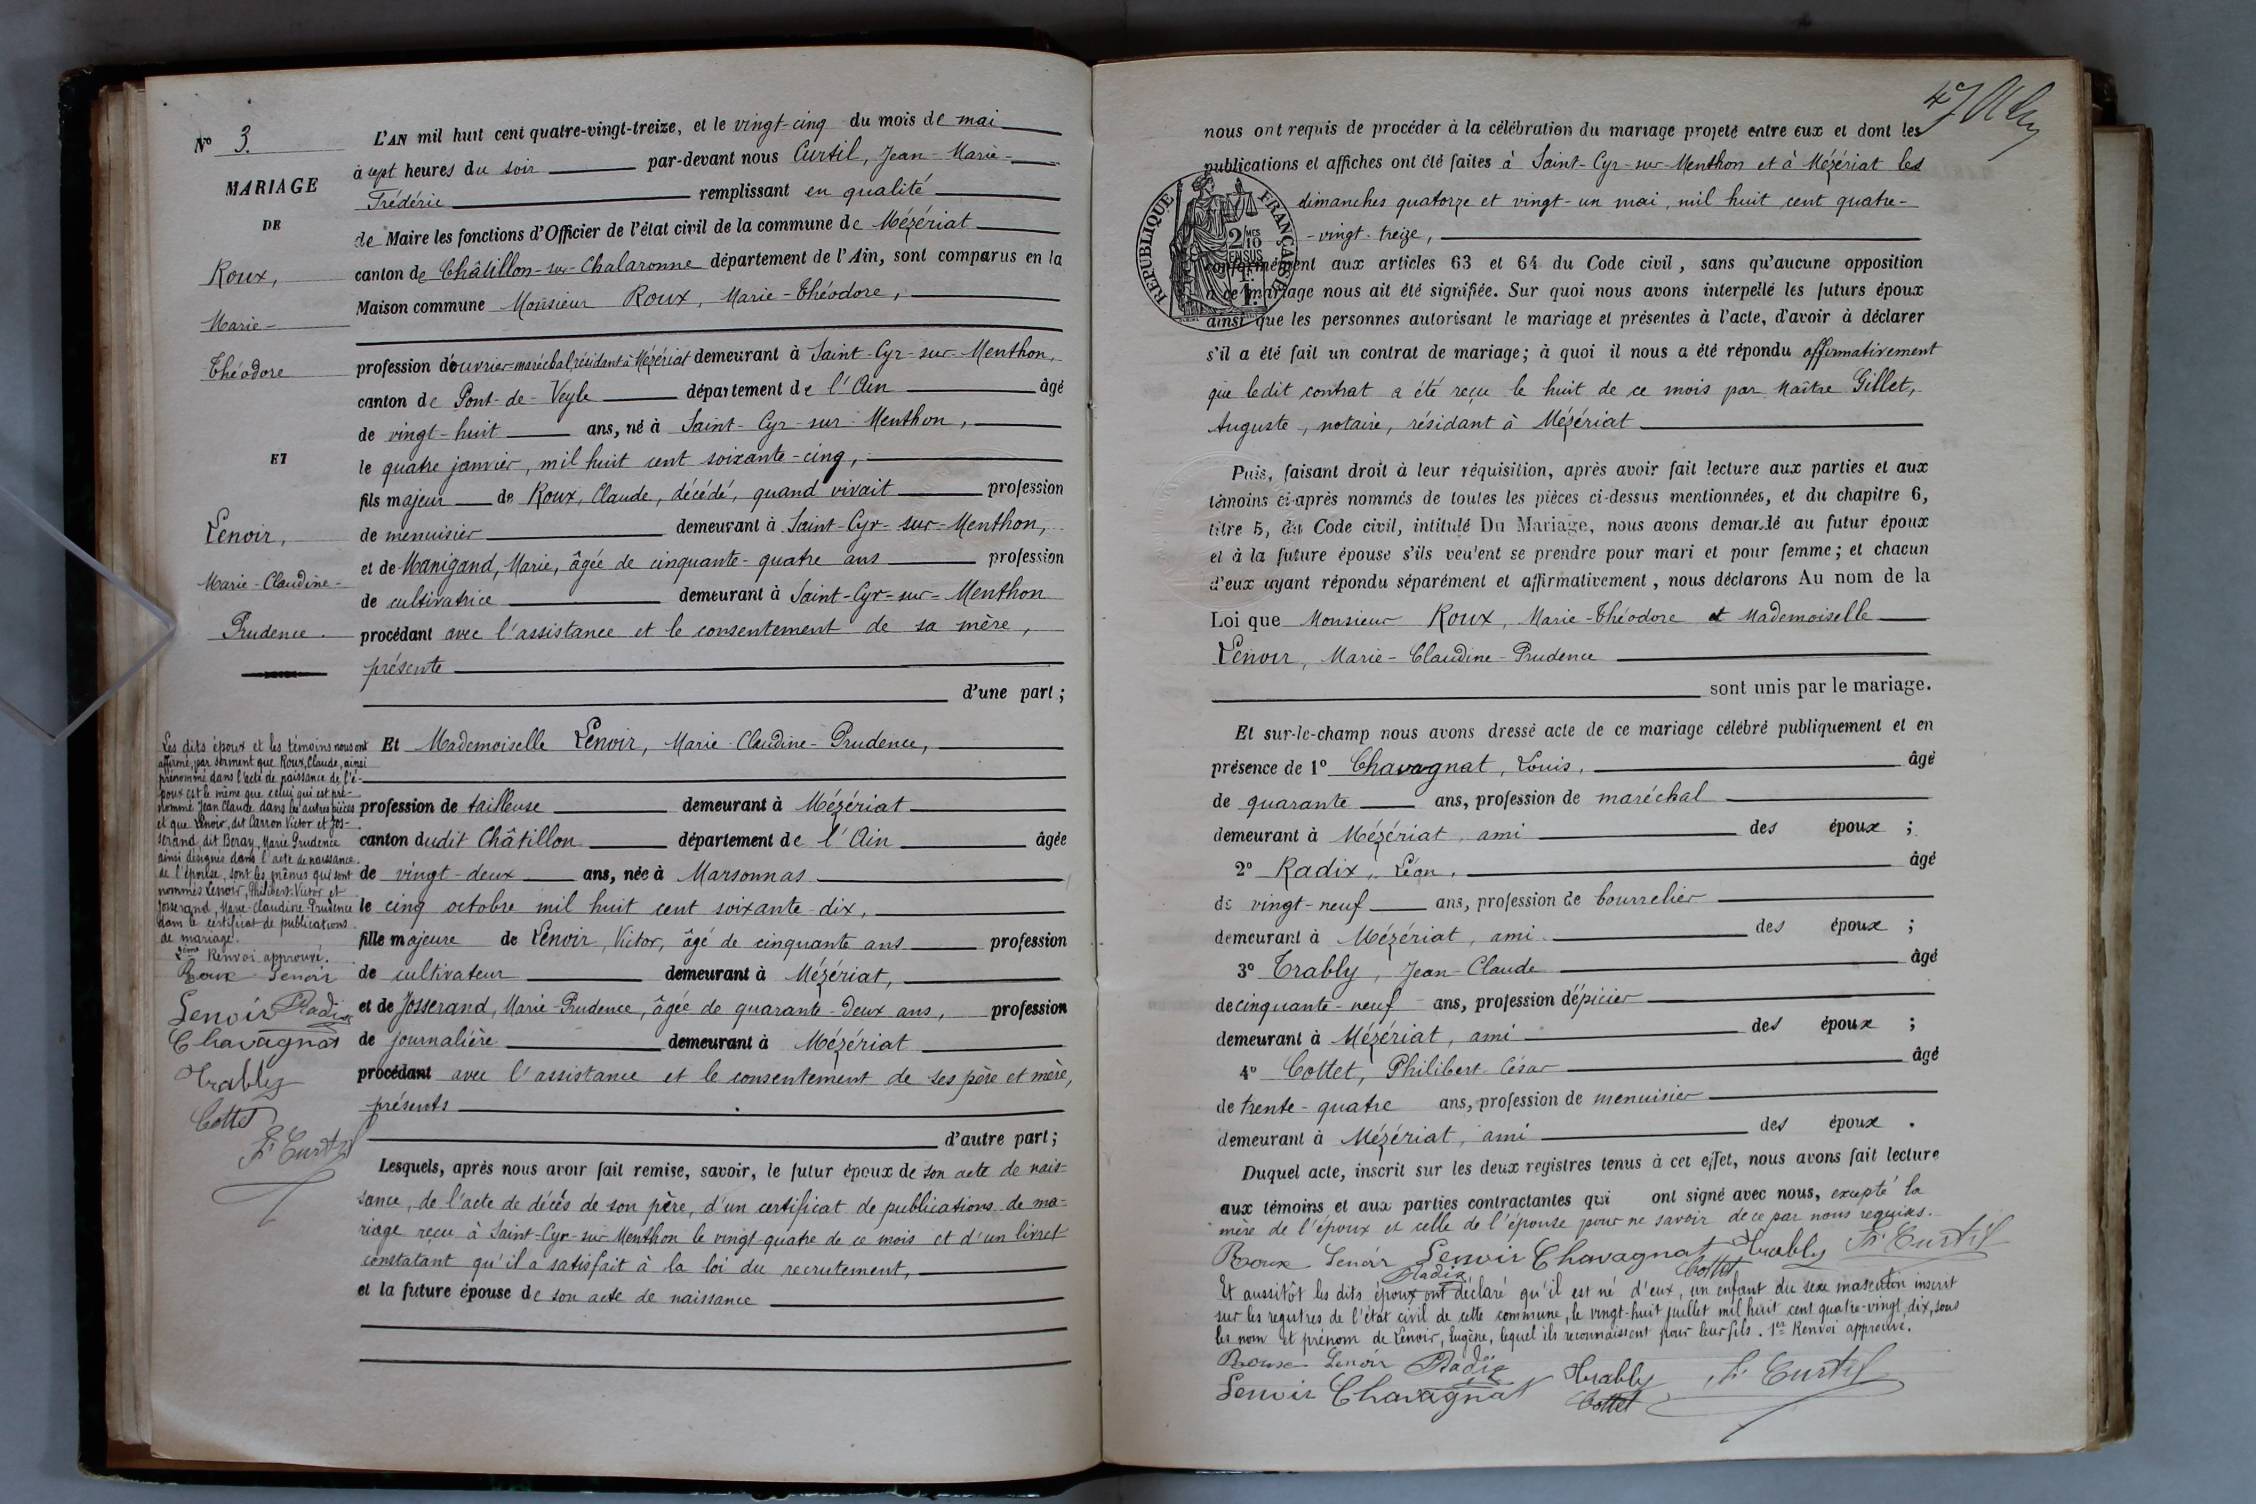 Nº 3.
MARIAGE
DE
Roux,
Marie-
Théodore
ET
Lenoir,
Marie-Claudine-
Prudence.
L'AN mil huit cent quatre-vingt-treize, et le vingt-cinq du mois de mai
à sept heures du soir par-devant nous Curtil, Jean-Marie-
Frédéric remplissant en qualité
de Maire les fonctions d'Officier de l'état civil de la commune de Mézériat
canton de Châtillon-sur-Chalaronne département de l'Ain, sont comparus en la
Maison commune Monsieur Roux, Marie-Théodore,
profession d'ouvrier-maréchal, résidant à Mézériat demeurant à Saint-Cyr-sur-Menthon,
canton de Pont-de-Veyle département de l'Ain âgé
de vingt-huit ans, né à Saint-Cyr-sur-Menthon,
le quatre janvier, mil huit cent soixante-cinq,
fils majeur de Roux, Claude, décédé, quand vivait profession
de menuisier demeurant à Saint-Cyr-sur-Menthon,
et de Manigand, Marie, âgée de cinquante-quatre ans profession
de cultivatrice demeurant à Saint-Cyr-sur-Menthon
procédant avec l'assistance et le consentement de sa mère,
présente
d'une part;
Et Mademoiselle Lenoir, Marie-Claudine-Prudence,
profession de tailleuse demeurant à Mézériat
canton dudit Châtillon département de l'Ain âgée
de vingt-deux ans, née à Marsonnas
le cinq octobre mil huit cent soixante-dix,
fille majeure de Lenoir, Victor, âgé de cinquante ans profession
de cultivateur demeurant à Mézériat,
et de Josserand, Marie-Prudence, âgée de quarante-deux ans, profession
de journalière demeurant à Mézériat
procédant avec l'assistance et le consentement de ses père et mère,
présents
d'autre part;
Lesquels, après nous avoir fait remise, savoir, le futur époux de son acte de nais-
sance, de l'acte de décès de son père, d'un certificat de publications de ma-
riage reçu à Saint-Cyr-sur-Menthon le vingt-quatre de ce mois et d'un livret
constatant qu'il a satisfait à la loi du recrutement,
et la future épouse de son acte de naissance
Les dits époux et les témoins nous ont
affirmé, par serment que Roux, Claude, ainsi
prénommé dans l'acte de naissance de l'é-
poux est le même que celui qui est pré-
nommé Jean Claude dans les autres pièces
et que Lenoir, dit Carron Victor et Jos-
serand, dit Beray, Marie Prudence
ainsi désignés dans l'acte de naissance
de l'épouse, sont les mêmes qui sont
nommés Lenoir, Philibert-Victor et
Josserand, Marie-Claudine-Prudence
dans le certificat de publications
de mariage.
2ème Renvoi approuvé.
Roux Lenoir
Lenoir Radix
Chavagnat
Trably
Cottet
F. Curtil
nous ont requis de procéder à la célébration du mariage projeté entre eux et dont les
publications et affiches ont été faites à Saint-Cyr-sur-Menthon et à Mézériat les
dimanches quatorze et vingt-un mai, mil huit cent quatre-
-vingt-treize,
RÉPUBLIQUE FRANÇAISE
2/10 MES
EN SUS
1F.
conformément aux articles 63 et 64 du Code civil, sans qu'aucune opposition
à ce mariage nous ait été signifiée. Sur quoi nous avons interpellé les futurs époux
ainsi que les personnes autorisant le mariage et présentes à l'acte, d'avoir à déclarer
s'il a été fait un contrat de mariage; à quoi il nous a été répondu affirmativement
que ledit contrat a été reçu le huit de ce mois par Maître Gillet,
Auguste, notaire, résidant à Mézériat
Puis, faisant droit à leur réquisition, après avoir fait lecture aux parties et aux
témoins ci-après nommés de toutes les pièces ci-dessus mentionnées, et du chapitre 6,
titre 5, du Code civil, intitulé Du Mariage, nous avons demandé au futur époux
et à la future épouse s'ils veulent se prendre pour mari et pour femme; et chacun
d'eux ayant répondu séparément et affirmativement, nous déclarons Au nom de la
Loi que Monsieur Roux, Marie-Théodore et Mademoiselle
Lenoir, Marie-Claudine-Prudence
sont unis par le mariage.
Et sur-le-champ nous avons dressé acte de ce mariage célébré publiquement et en
présence de 1º Chavagnat, Louis, âgé
de quarante ans, profession de maréchal
demeurant à Mézériat, ami des époux;
2º Radix, Léon, âgé
de vingt-neuf ans, profession de bourrelier
demeurant à Mézériat, ami des époux;
3º Trably, Jean-Claude âgé
de cinquante-neuf ans, profession d'épicier
demeurant à Mézériat, ami des époux;
4º Cottet, Philibert César âgé
de trente-quatre ans, profession de menuisier
demeurant à Mézériat, ami des époux.
Duquel acte, inscrit sur les deux registres tenus à cet effet, nous avons fait lecture
aux témoins et aux parties contractantes qui ont signé avec nous, excepté la
mère de l'époux et celle de l'épouse pour ne savoir de ce par nous requises.
Roux Lenoir Lenoir Chavagnat Trably F. Curtil
Radix Cottet
Et aussitôt les dits époux ont déclaré qu'il est né d'eux, un enfant du sexe masculin inscrit
sur les registres de l'état civil de cette commune, le vingt-huit juillet mil huit cent quatre-vingt dix, sous
les nom et prénom de Lenoir, Eugène, lequel ils reconnaissent pour leur fils. 1er Renvoi approuvé.
Roux Lenoir Radix Trably F. Curtil
Lenoir Chavagnat Cottet